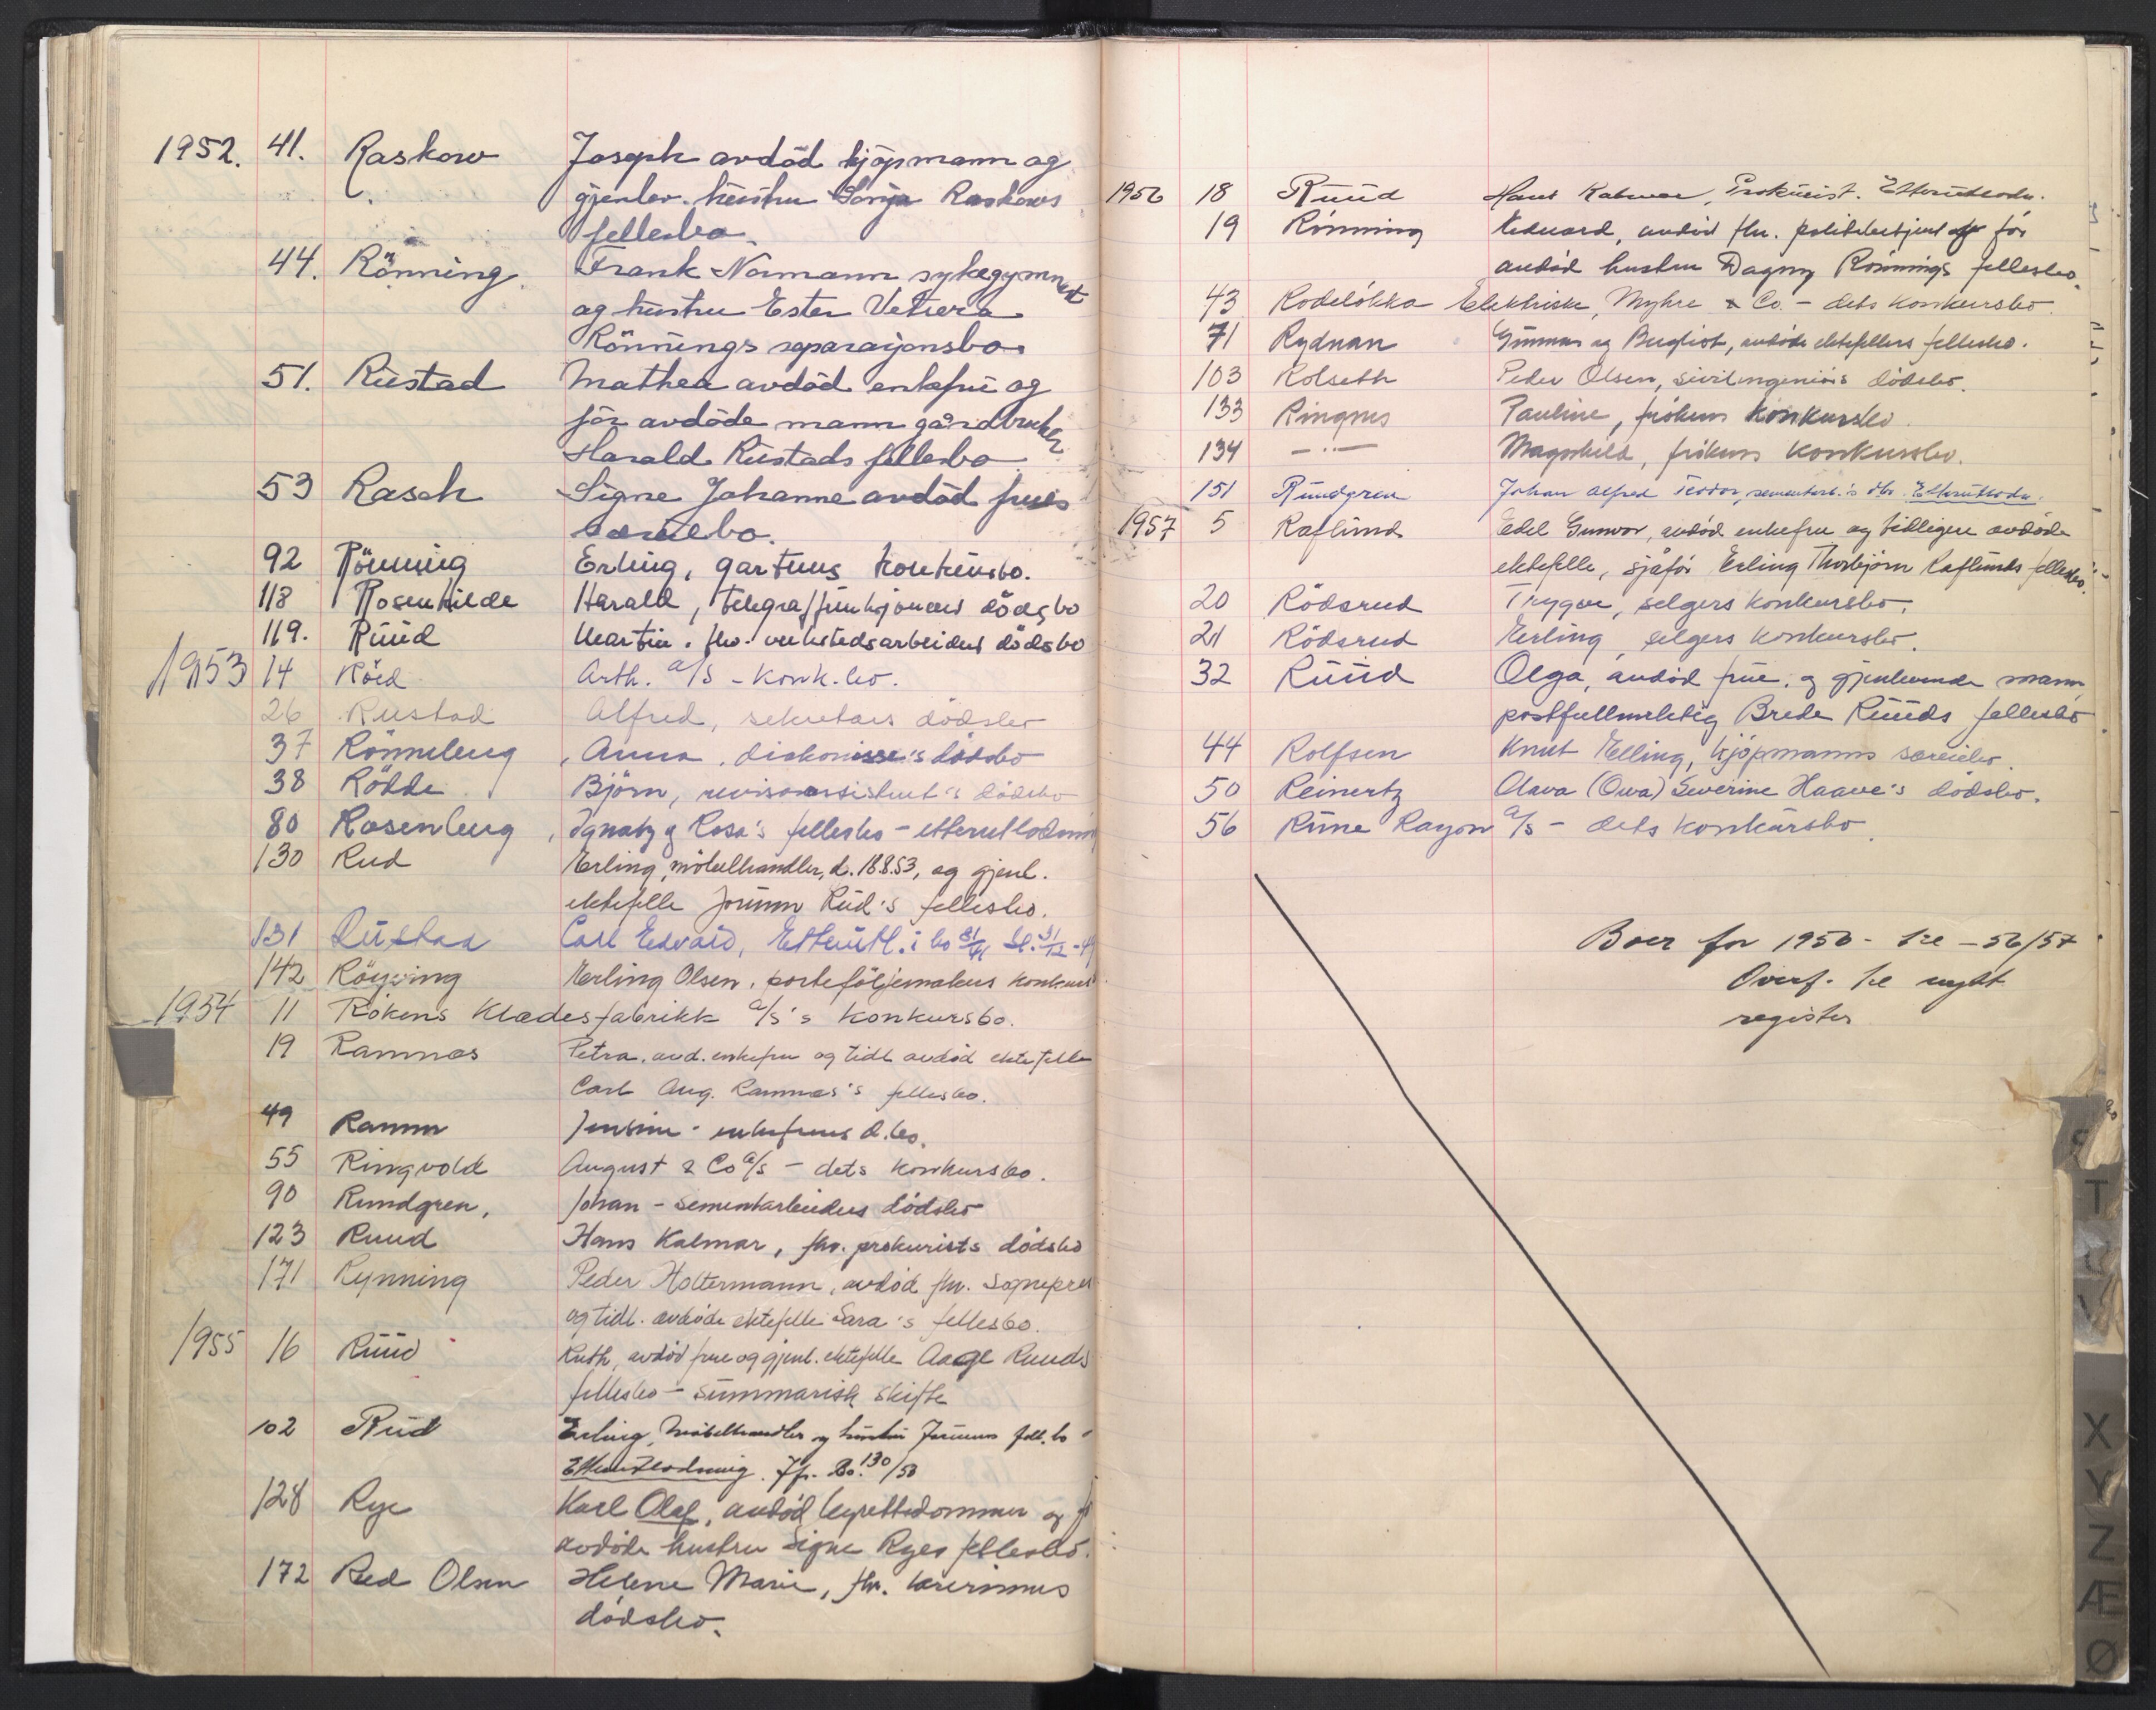 1952. 41. Raskow Joseph avdöd kjöpmann og
gjenlev. hustru Sonja Raskows
fellesbo.
44. Rönning Frank Normann sykegymnast
og hustru Ester Vetiera
Rönnings separasjonsbo.
51. Rustad Mathea avdöd enkefru og
för avdöde mann gårdbruker
Harald Rustads fellesbo
53 Rasch Signe Johanne avdöd frues
særeiebo.
92 Rönning Erling, gartners konkursbo.
118 Rosenkilde Harald, telegraffunksjonærs dödsbo
119. Ruud Martin. fhv. verkstedsarbeiders dödsbo
1953 14 Röed Arth. a/s - konk.bo.
26 Rustad Alfred, sekretærs dödsbo
37 Rönneberg, Anna, diakonisse's dödsbo
38 Rödde Björn, revisorassistent's dödsbo
80 Rosenberg, Ignatz og Rosa's fellesbo - etterutlodning
130 Rud Erling, möbelhandler, d. 18.8.53, og gjenl.
ektefelle Jorunn Rud's fellesbo.
131 Rustad Carl Edvard, Etterutl. i bo
142 Röyving Erling Olsen, porteföljemakers konkurs
1954 11 Rökens Klædesfabrikk a/s's konkursbo.
19 Ramnæs Petra, avd. enkefru og tidl. avdöd ektefelle
Carl Aug. Ramnæs's fellesbo.
49 Ramm Jensine - enkefrues d.bo.
55 Ringvold August & Co a/s - dets konkursbo.
90 Rundgren, Johan - sementarbeiders dödsbo
123 Ruud Hans Kalmar, fhv. prokurists dödsbo
171 Rynning Peder Holtermann, avdöd fhv. sognepres
og tidl. avdöde ektefelle Sara's fellesbo.
1955 16 Ruud Ruth, avdöd frue og gjenl. ektefelle Aage Ruuds
fellesbo - summarisk skifte
102 Rud Erling, möbelhandler og hustru Jorunns fell.bo
Etterutlodning. Jfr. Bo. 130/53
128 Rye Karl Olaf, avdöd høyrettsdommer og f
avdöde hustru Signe Ryes fellesbo.
172 Red Olsen Helene Marie, fhv. lærerinnes
dödsbo.
1956 18 Ruud Hans Kalmar, Prokurist. Etterutlodn.
19 Rönning Edvard, avdöd fhv. politibetjent og för
avdöd hustru Dagny Rönnings fellesbo.
43 Rodelökka Elektriske, Myhre & Co. - dets konkursbo.
71 Rydman Gunnar og Bergliot, avdöde ektefellers fellesbo.
103 Rolseth Peder Olsen, sivilingeniörs dödsbo.
133 Ringnes Pauline, frökens konkursbo.
134 - " - Magnhild, frökens konkursbo.
151 Rundgren Johan Alfred Teodor, sementarb.'s dbo. Etterutlodn.
1957 5 Raflund Edel Gunvor, avdöd enkefru og tidligere avdöde
ektefelle, sjåför Erling Thorbjörn Raflunds fellesbo.
20 Rödsrud Trygve, selgers konkursbo.
21 Rödsrud Erling, selgers konkursbo.
32 Ruud Olga, avdöd frue, og gjenlevende mann,
postfullmektig Brede Ruuds fellesbo
44 Rolfsen Knut Elling, kjöpmanns særeiebo.
50 Reinertz Olava (Ova) Severine Haave's dödsbo.
56 Rune Rayon a/s - dets konkursbo.
Boer for 1956 - - 56/57
Overf. til nytt
register
S
T
U
V
X
Y
Z
Æ
Ø